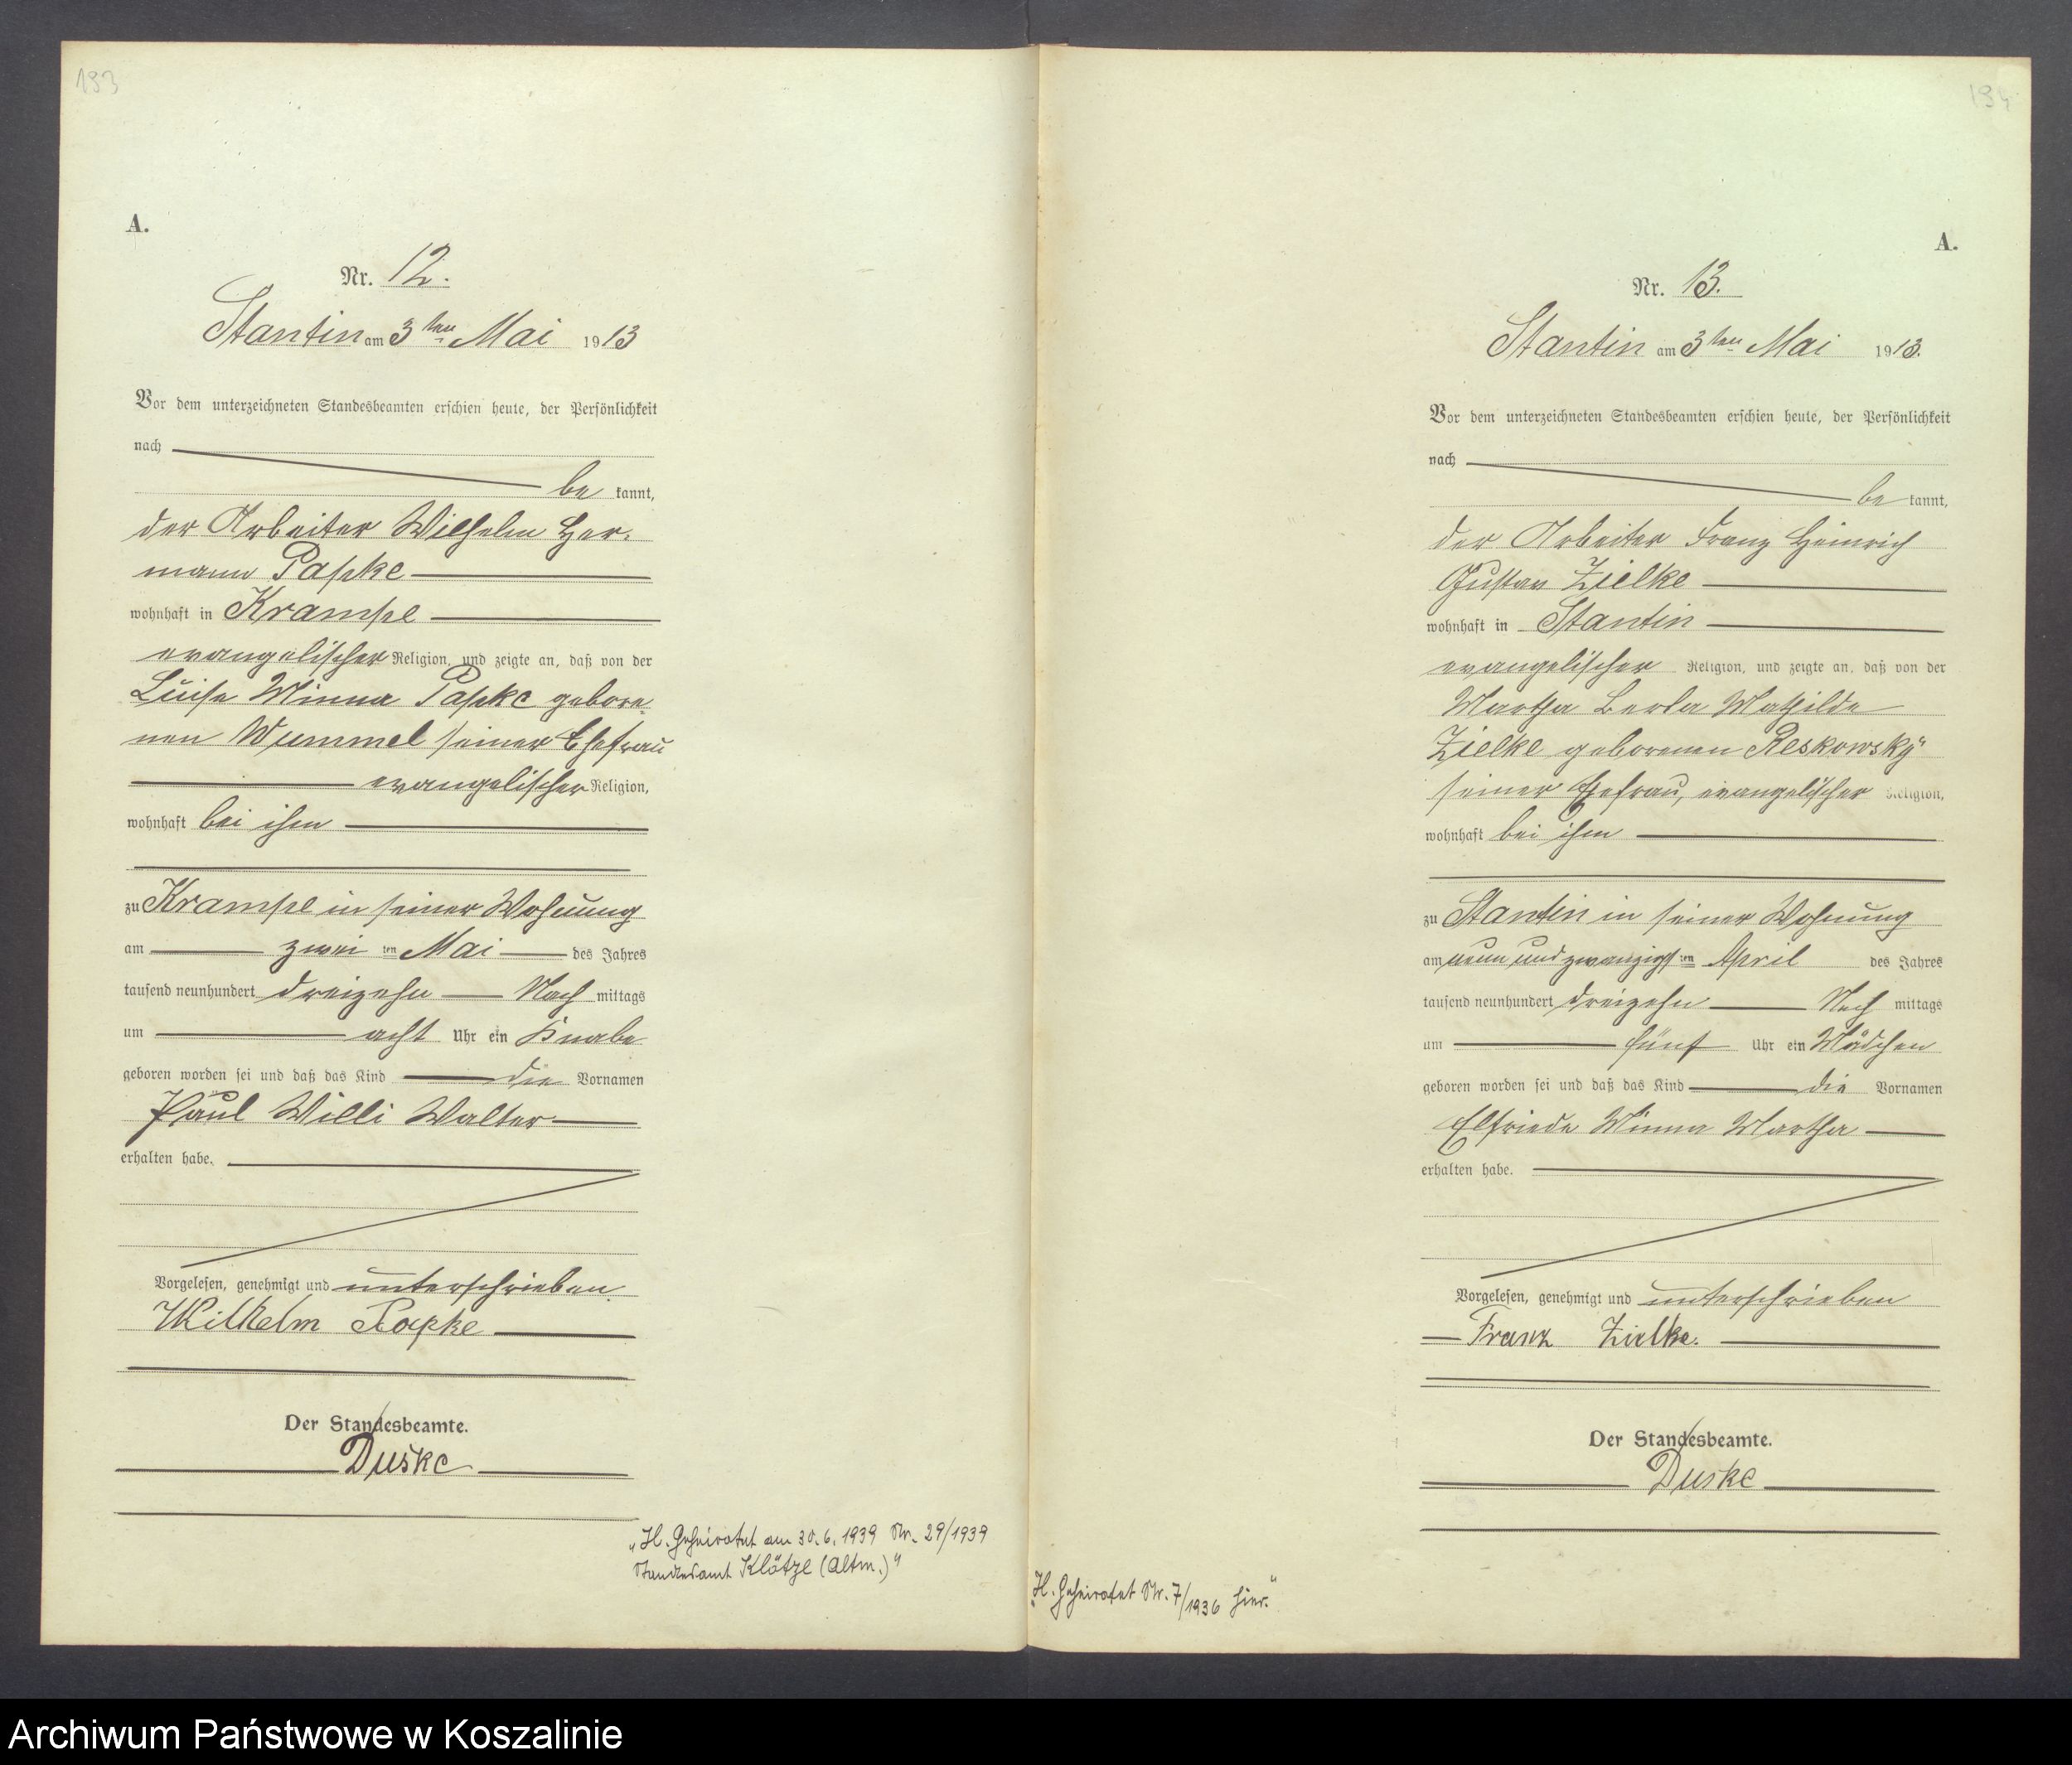 193
A.
Nr. 12.
Stantin am 3ten Mai 1913
Vor dem unterzeichneten Standesbeamten erschien heute, der Persönlichkeit
nach
be kannt,
der Arbeiter Wilhelm Her-
mann Papke
wohnhaft in Krampe
evangelischer Religion, und zeigte an, daß von der
Luise Minna Papke gebore-
nen Wummel seiner Ehefrau
evangelischer Religion,
wohnhaft bei ihm
zu Krampe in seiner Wohnung
am zwei ten Mai des Jahres
tausend neunhundert dreizehn Nach mittags
um acht Uhr ein Knabe
geboren worden sei und daß das Kind die Vornamen
Paul Willi Walter
erhalten habe.
Vorgelesen, genehmigt und unterschrieben
Wilhelm Papke
Der Standesbeamte.
Duske
„H. Geheiratet am 30.6.1939 Nr. 29/1939
Standesamt Klötze (Altm.)"
194
A.
Nr. 13.
Stantin am 3ten Mai 1913.
Vor dem unterzeichneten Standesbeamten erschien heute, der Persönlichkeit
nach
be kannt,
der Arbeiter Franz Heinrich
Gustav Zielke
wohnhaft in Stantin
evangelischer Religion, und zeigte an, daß von der
Martha Berta Mathilde
Zielke geborenen Reskowsky
seiner Ehefrau, evangelischer Religion,
wohnhaft bei ihm
zu Stantin in seiner Wohnung
am neun und zwanzigsten April des Jahres
tausend neunhundert dreizehn Nach mittags
um fünf Uhr ein Mädchen
geboren worden sei und daß das Kind die Vornamen
Elfriede Minna Martha
erhalten habe.
Vorgelesen, genehmigt und unterschrieben
Franz Zielke.
Der Standesbeamte.
Duske
„H. Geheiratet Nr. 7/1936 hier."
Archiwum Państwowe w Koszalinie